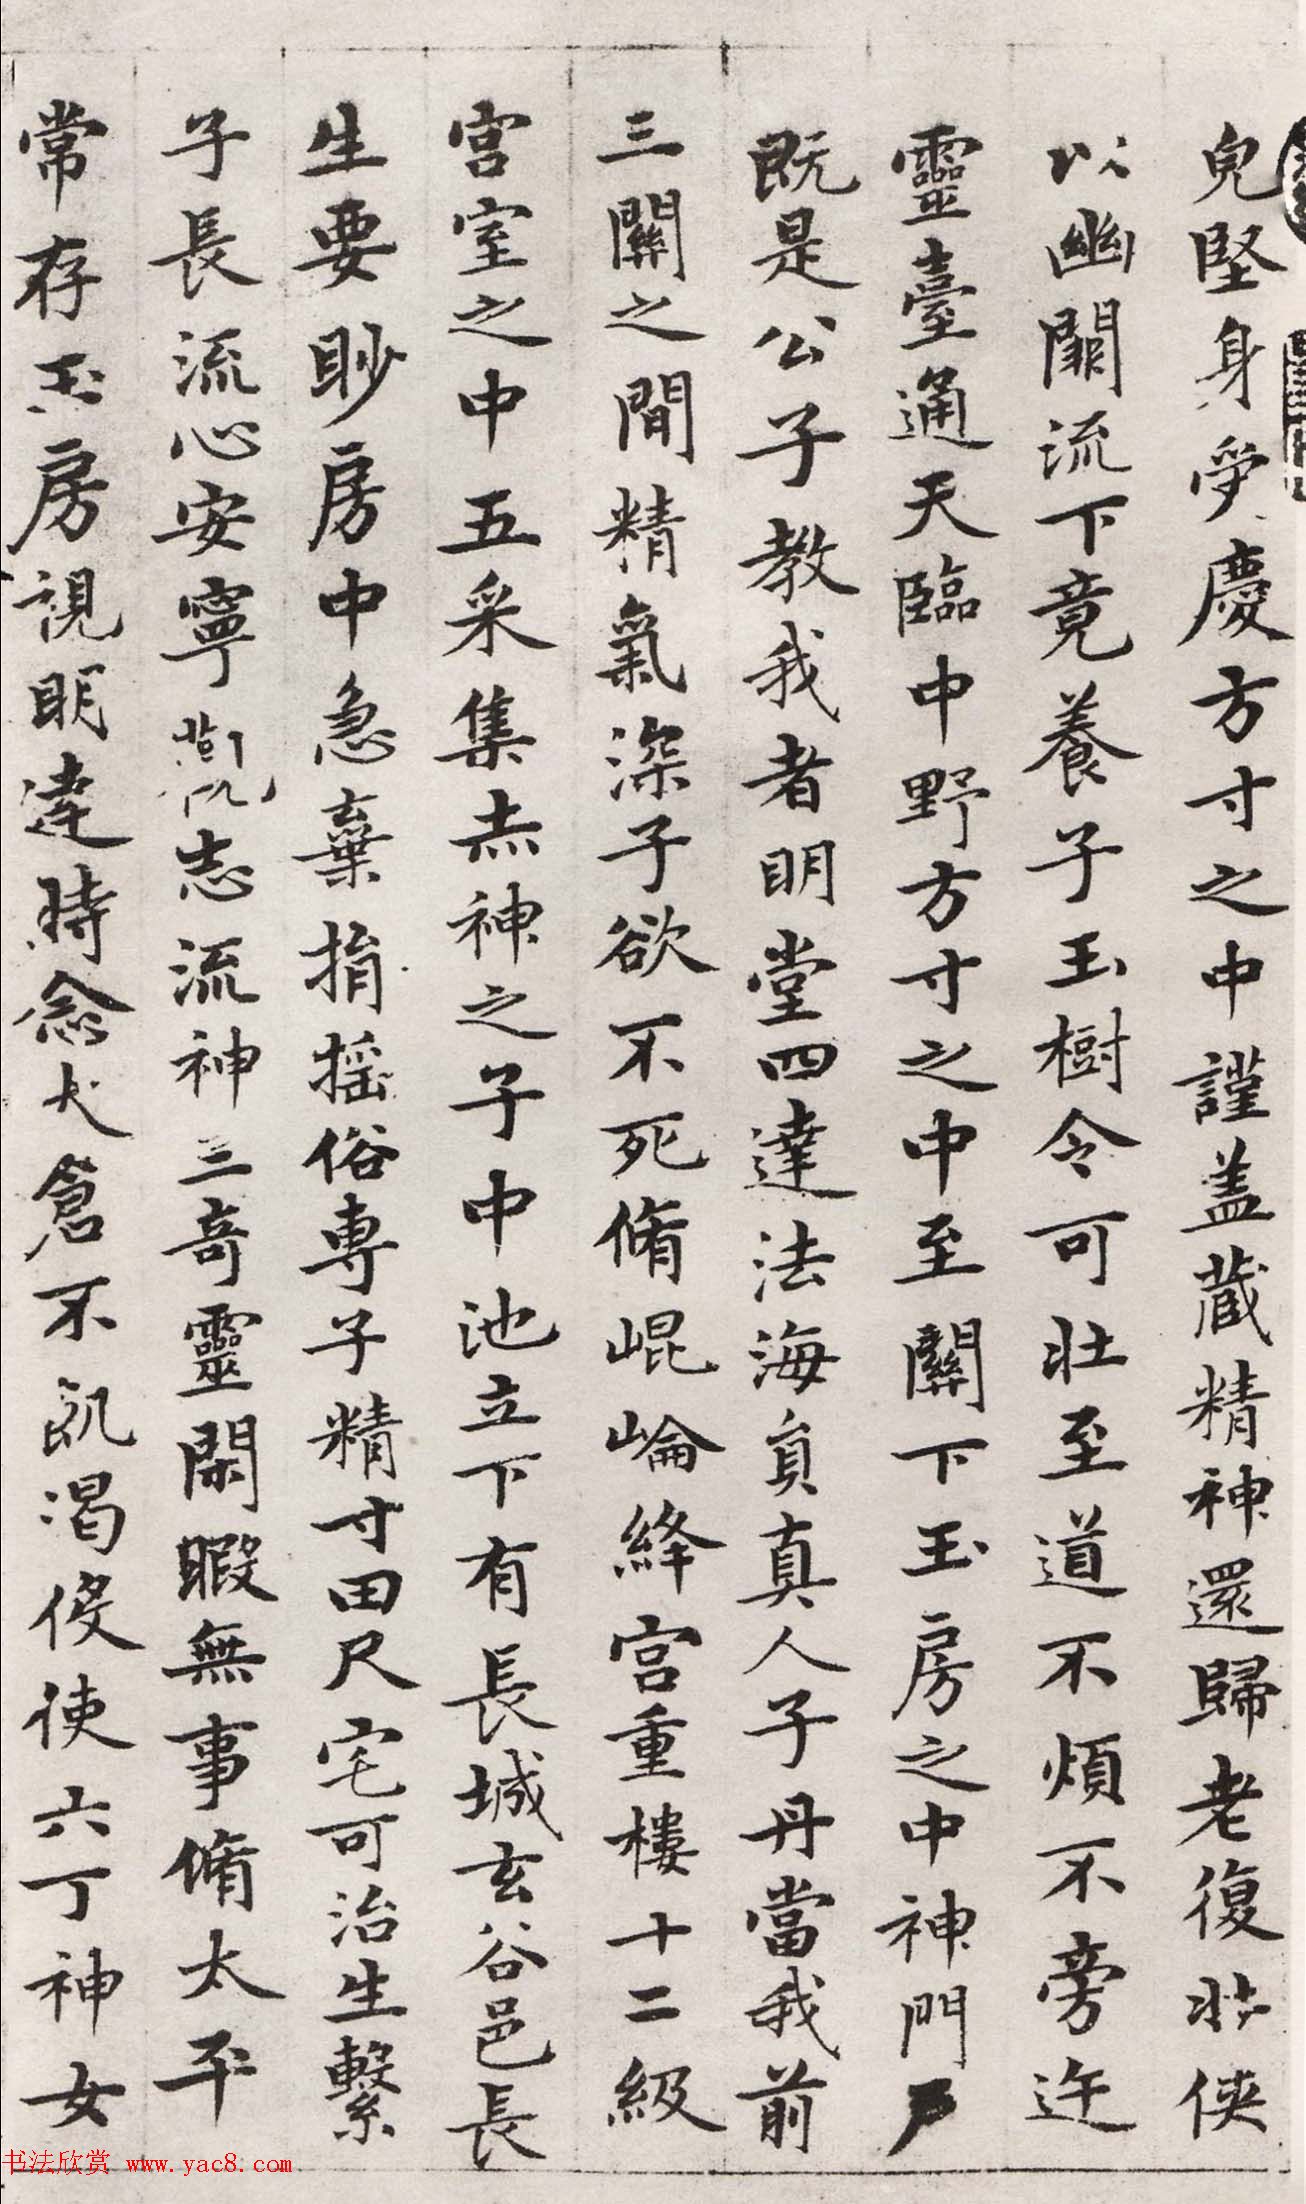 皃堅身受慶方寸之中謹盖蔵精神還歸老復壯俠
以幽闕流下竟養子玉樹令可壯至道不煩不旁迕
靈臺通天臨中野方寸之中至關下玉房之中神門戶
既是公子教我者明堂四達法海負真人子丹當我前
三關之間精氣深子欲不死脩崐崘絳宮重樓十二級
宮室之中五采集赤神之子中池立下有長城玄谷邑長
生要眇房中急棄捐搖俗專子精寸田尺宅可治生繫
子長流心安寧觀志流神三奇靈閑暇無事脩太平
常存玉房視明達時念大倉不飢渴伇使六丁神女
书法欣赏 www.yac8.com